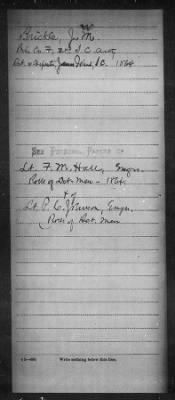 W
Brickle, J. M.
Pvt. Co. F, 2nd S. C. Arty
Det. as Carpenter, James Island, S.C. 1864
SEE PERSONAL PAPERS OF
Lt. F. M. Hall, Engrs.
Rolls of Det. Men - 1864
Lt. P. C. Johnson, Engrs.
Rolls of Det. Men
Write nothing below this line.